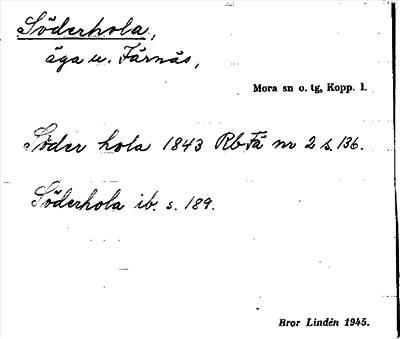 Söderhola,
äga u. Färnäs,
Mora sn o. tg, Kopp. l.
Söder hola 1843 Rb Fä nr 2 s. 136.
Söderhola ib. s. 189.
Bror Lindén 1945.